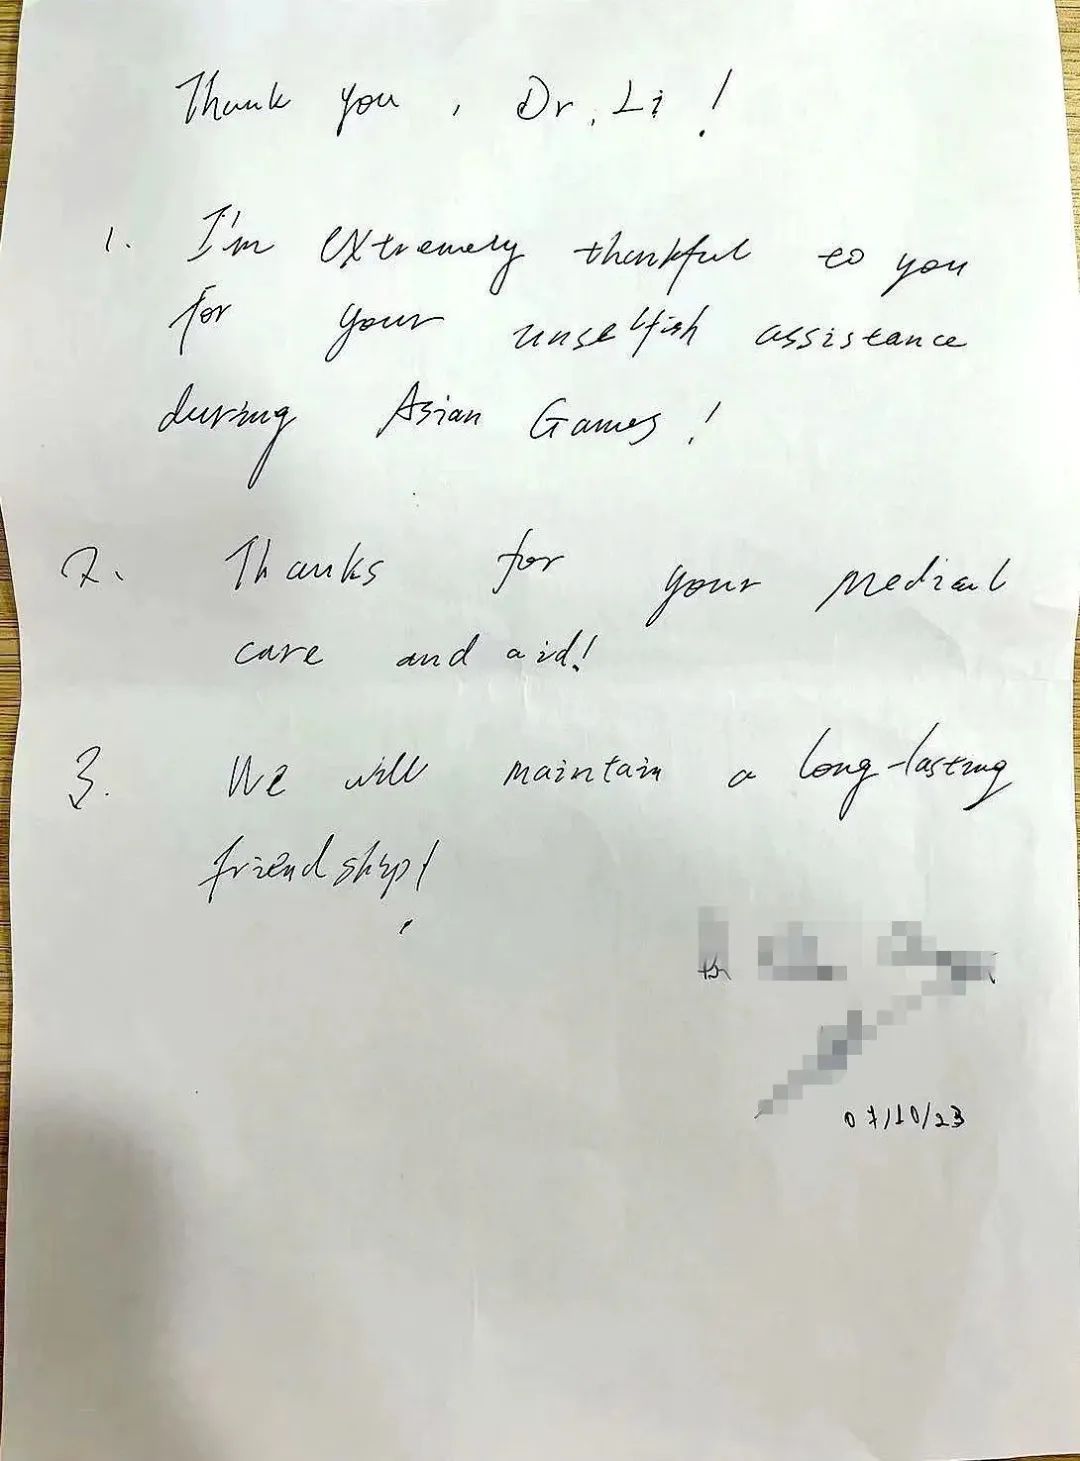 Thank you, Dr. Li!
1. I'm extremely thankful to you
for your unselfish assistance
during Asian Games!
2. Thanks for your medical
care and aid!
3. We will maintain a long-lasting
friendship!
07/10/23